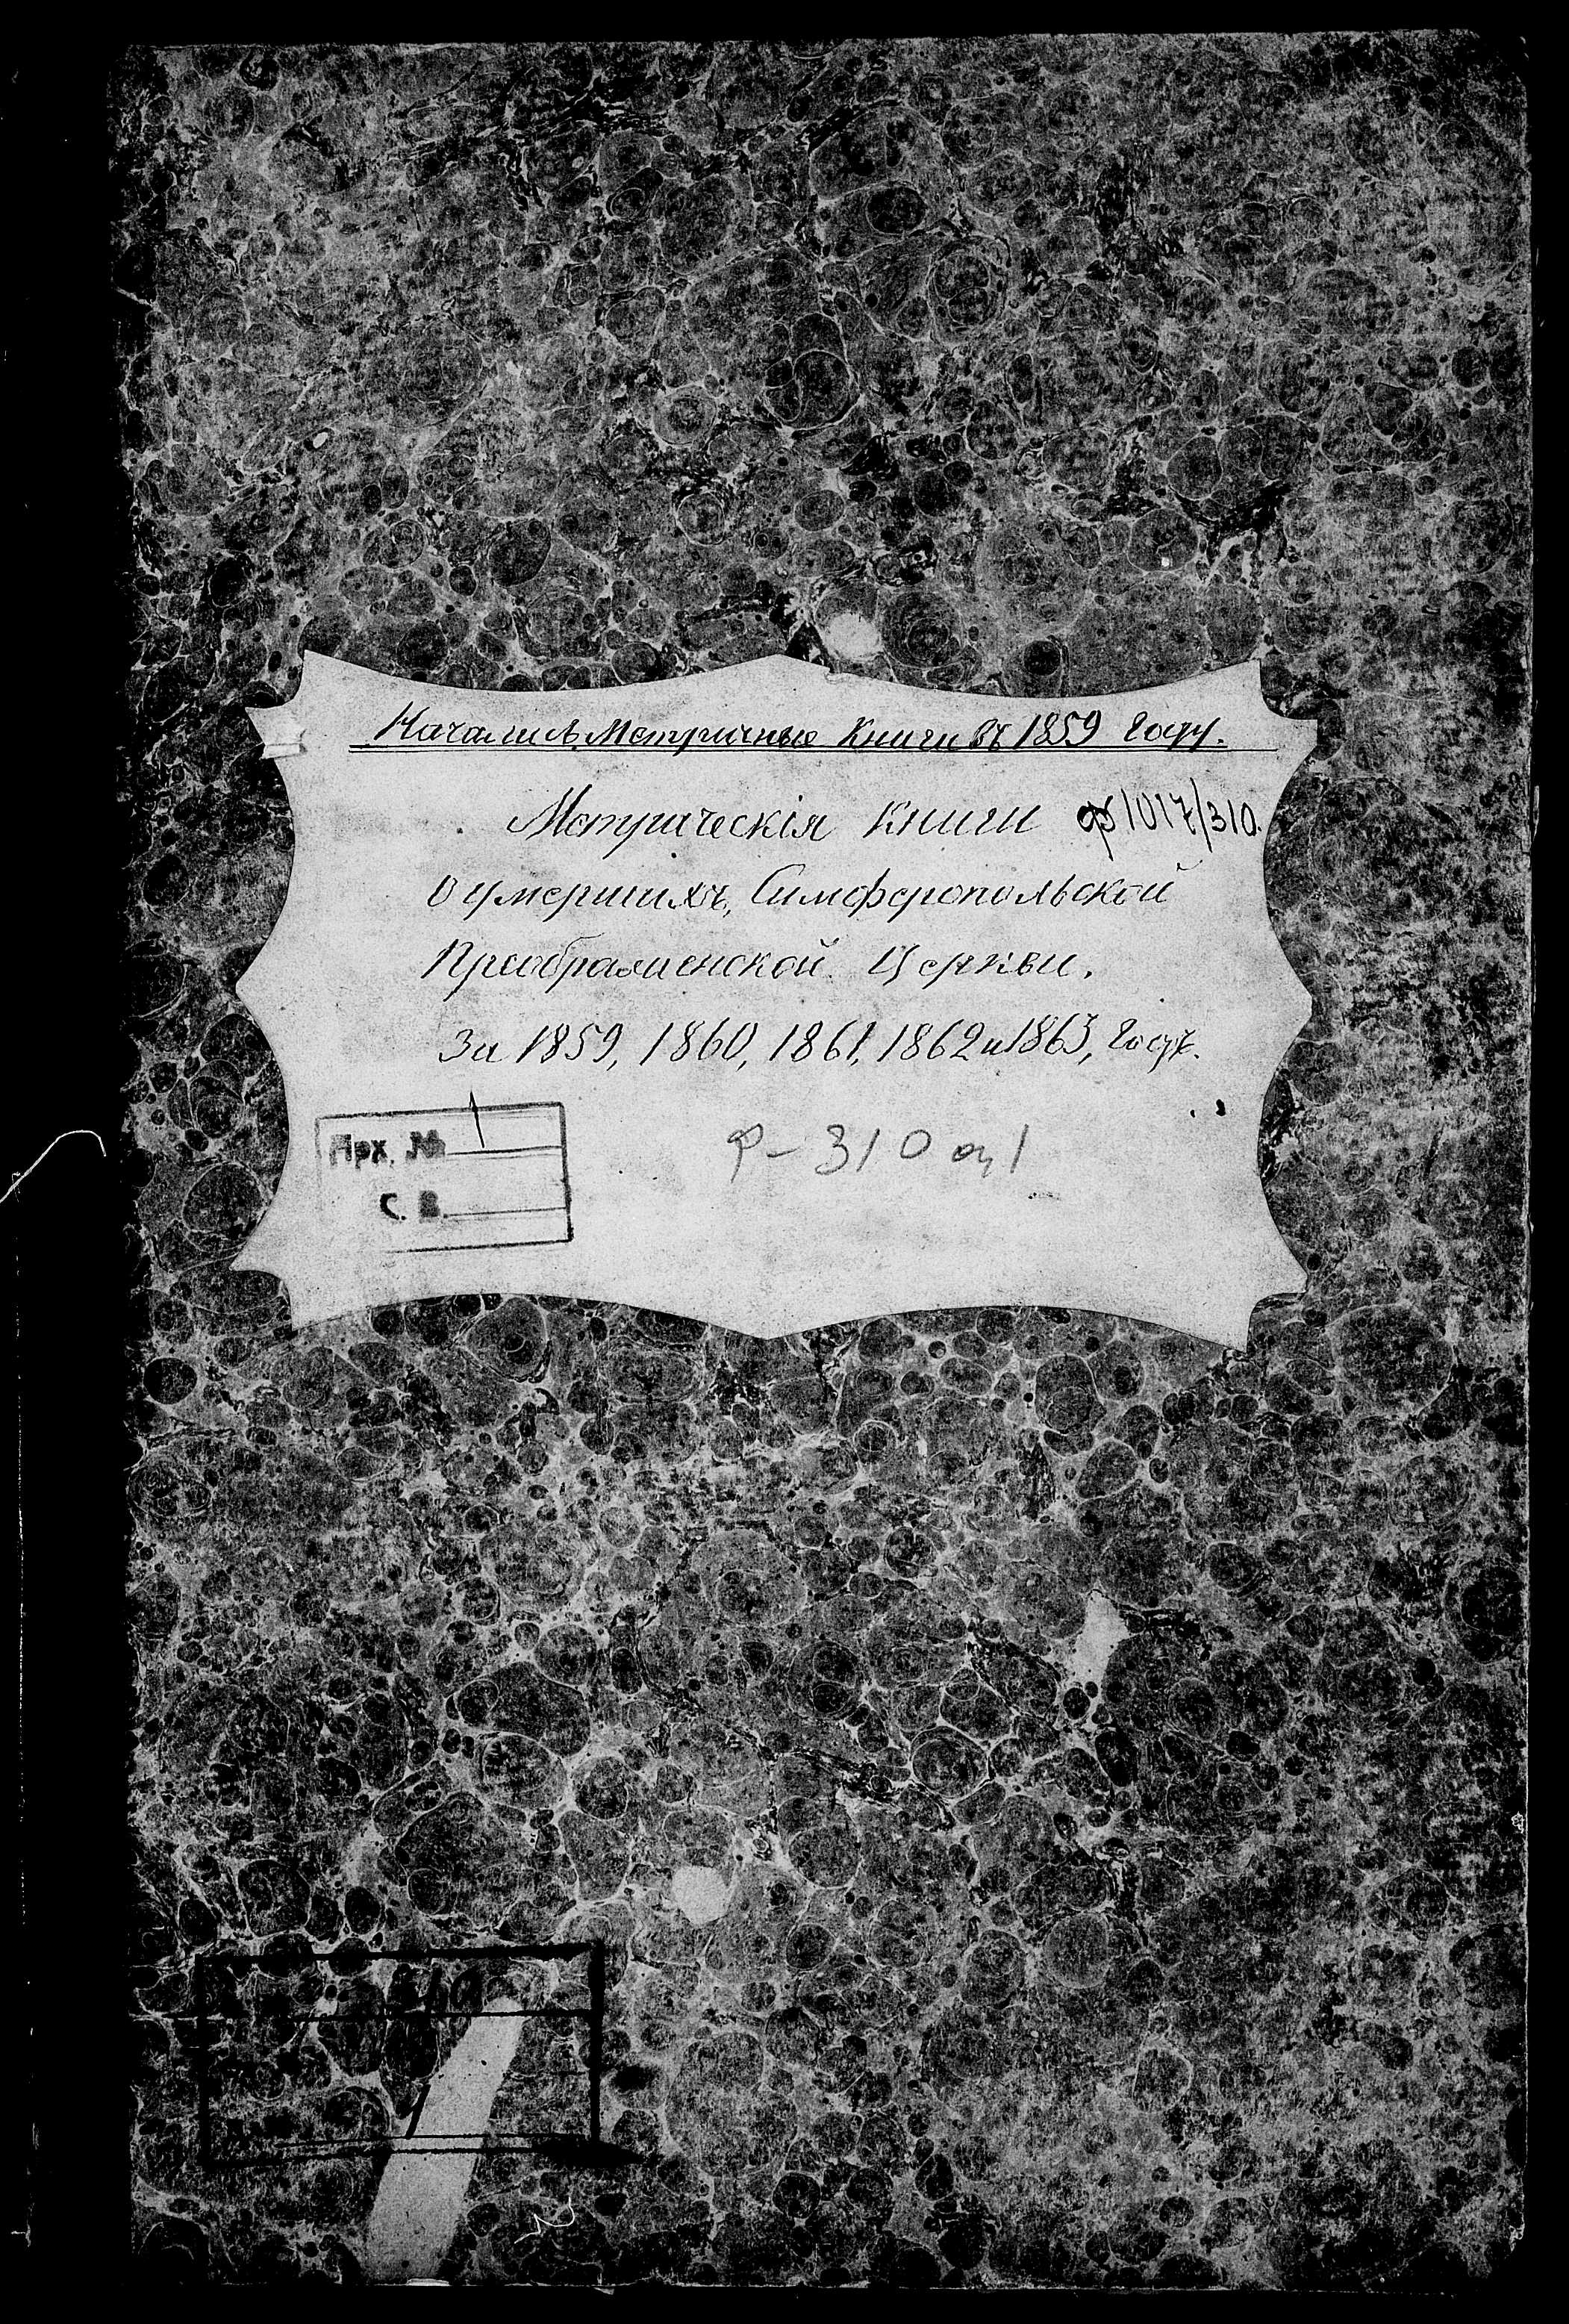 Начались Метричные Книги въ 1859 Году.
Метрическія Книги ф 1017/310.
О умершихъ, Симферопольской
Преображенской Церкви.
За 1859, 1860, 1861, 1862 и 1863, Годъ.
Арх. № 1
С. В.
Ф- 310 оп 1
310
1